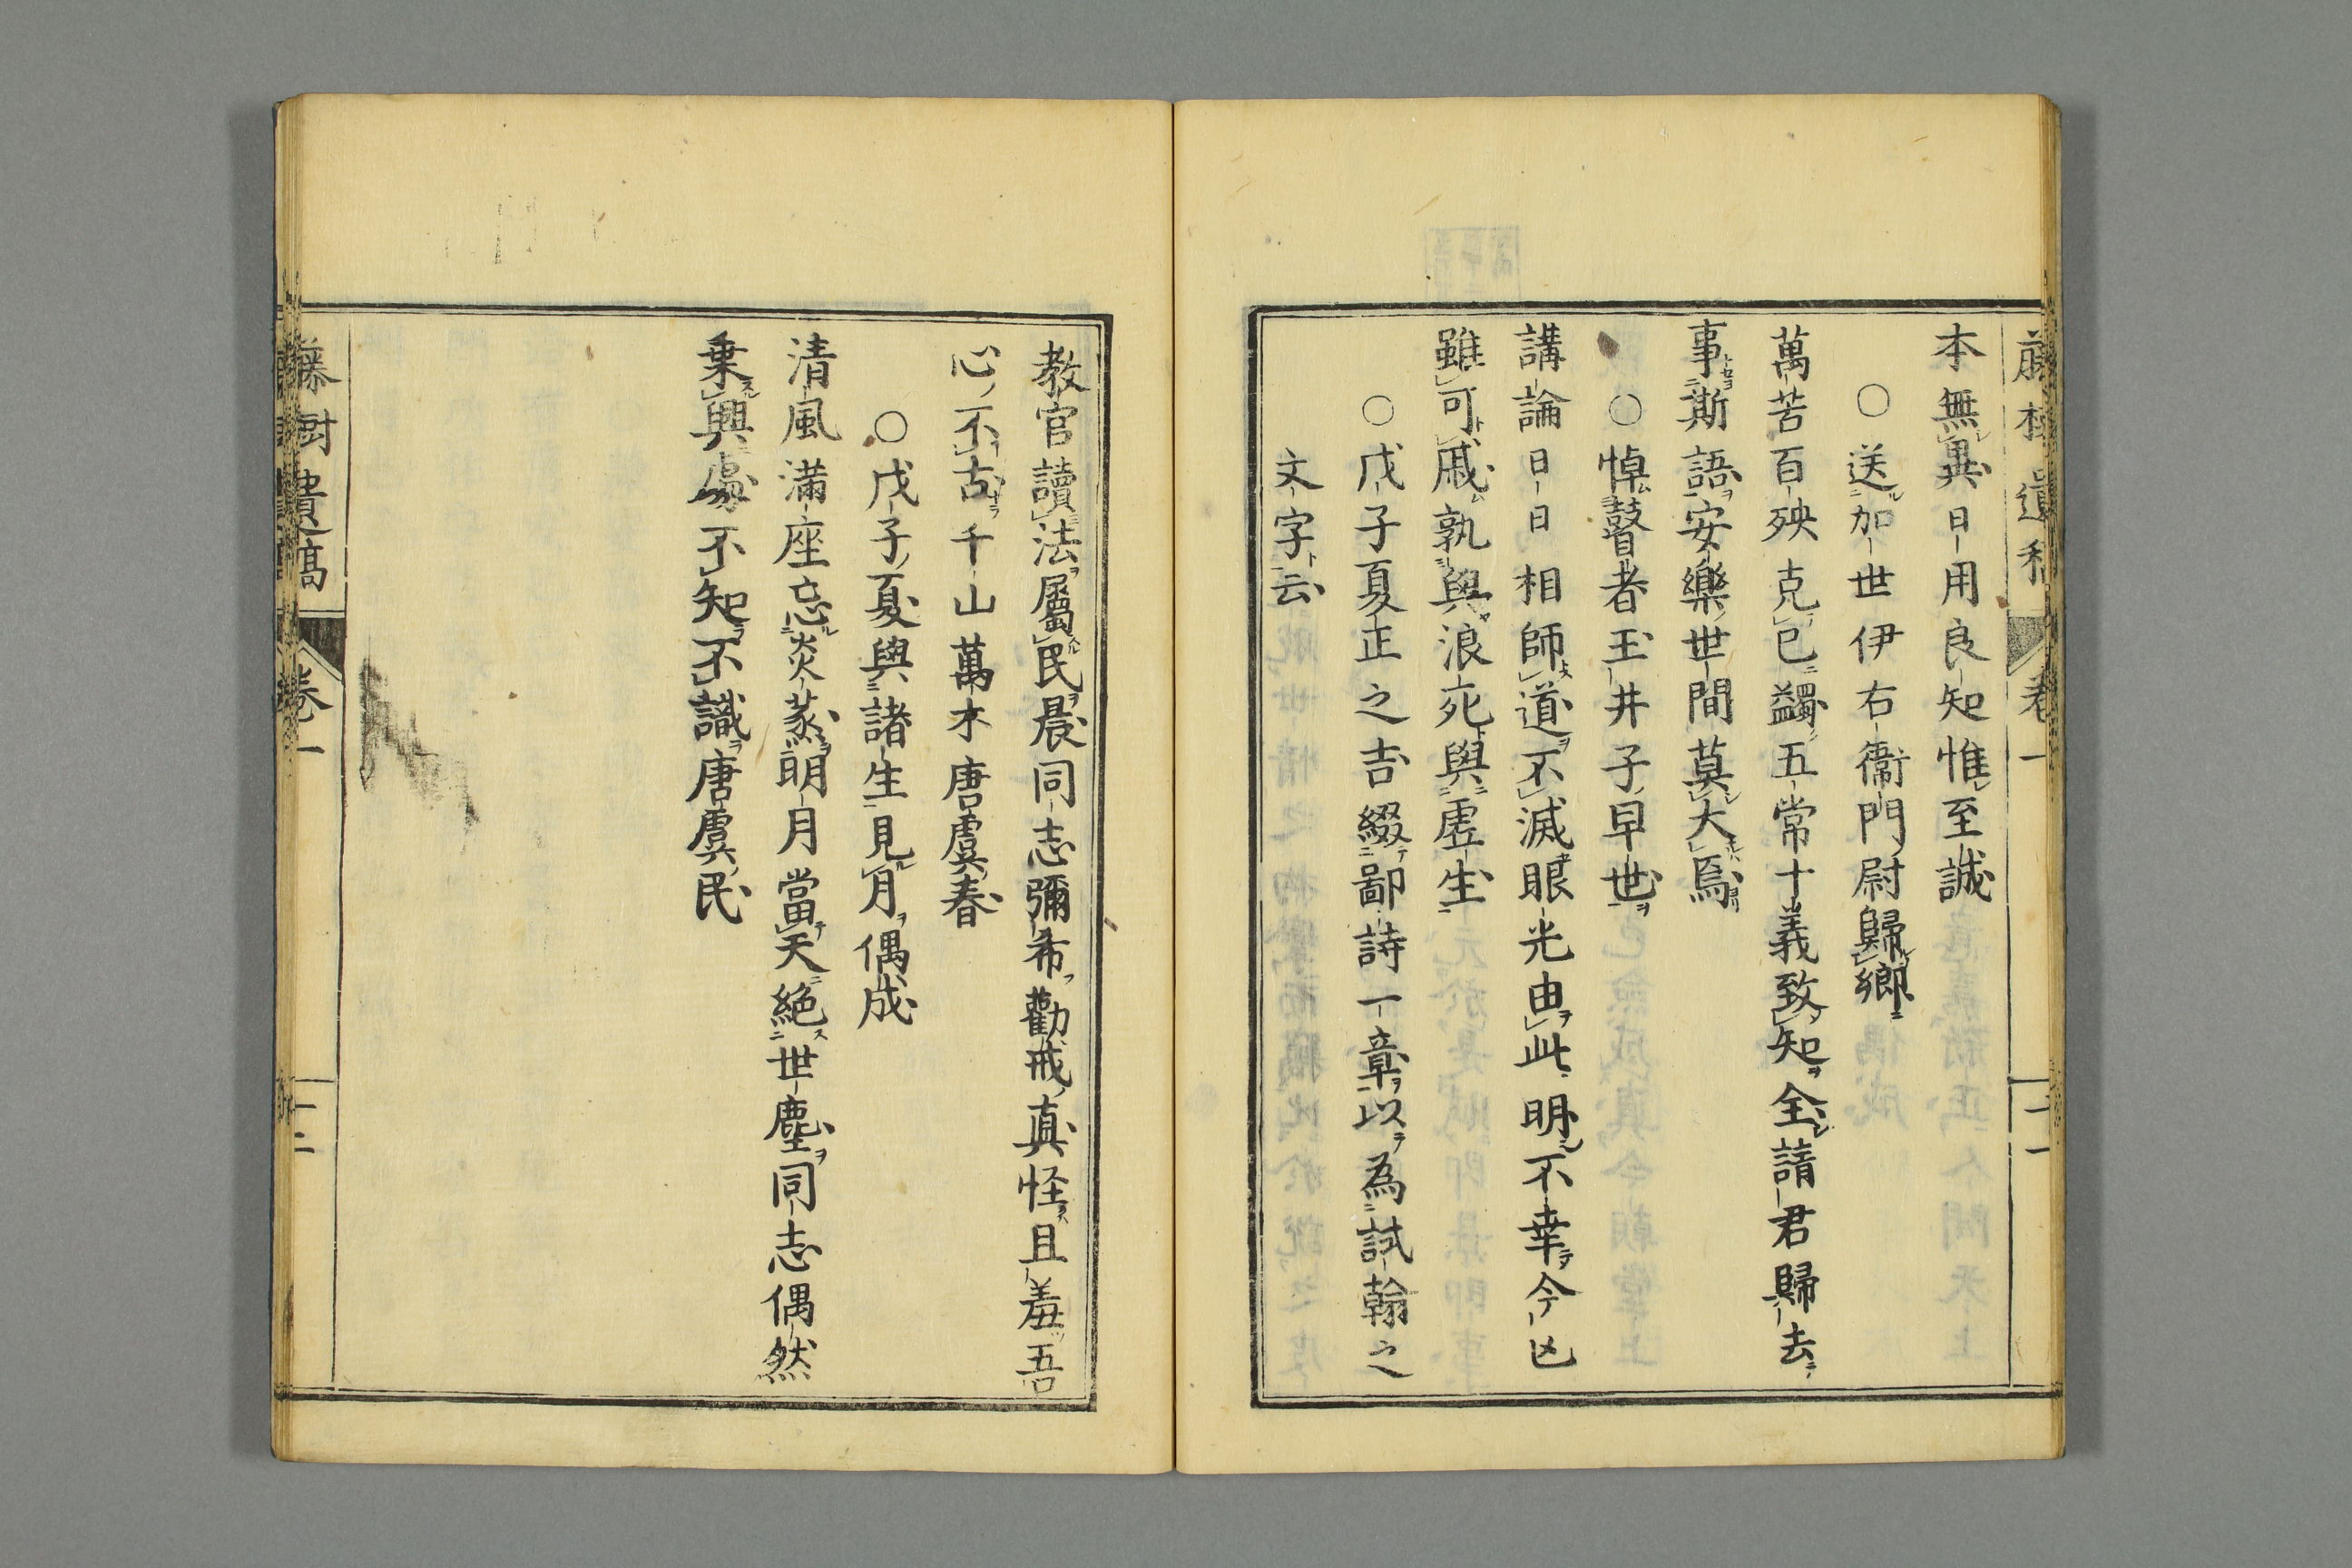 本無異日用良知惟至誠
○送加世伊右衞門尉歸鄉
萬苦百殃克已蠲五常十義致知全請君歸去
事斯語安樂世間莫大焉
○悼瞽者玉井子早世
講論日日相師道不滅眼光由此明不幸今凶
雖可戚孰與浪死與虛生
○戊子夏正之吉綴鄙詩一章以為試翰之
文字云
教官讀法屬民晨同志彌希勸戒真怪且羞吾
心不古千山萬木唐虞春
○戊子夏與諸生見月偶成
清風滿座忘炎蒸明月當天絕世塵同志偶然
乗興處不知不識唐虞民
藤樹遺稿 卷一 十二